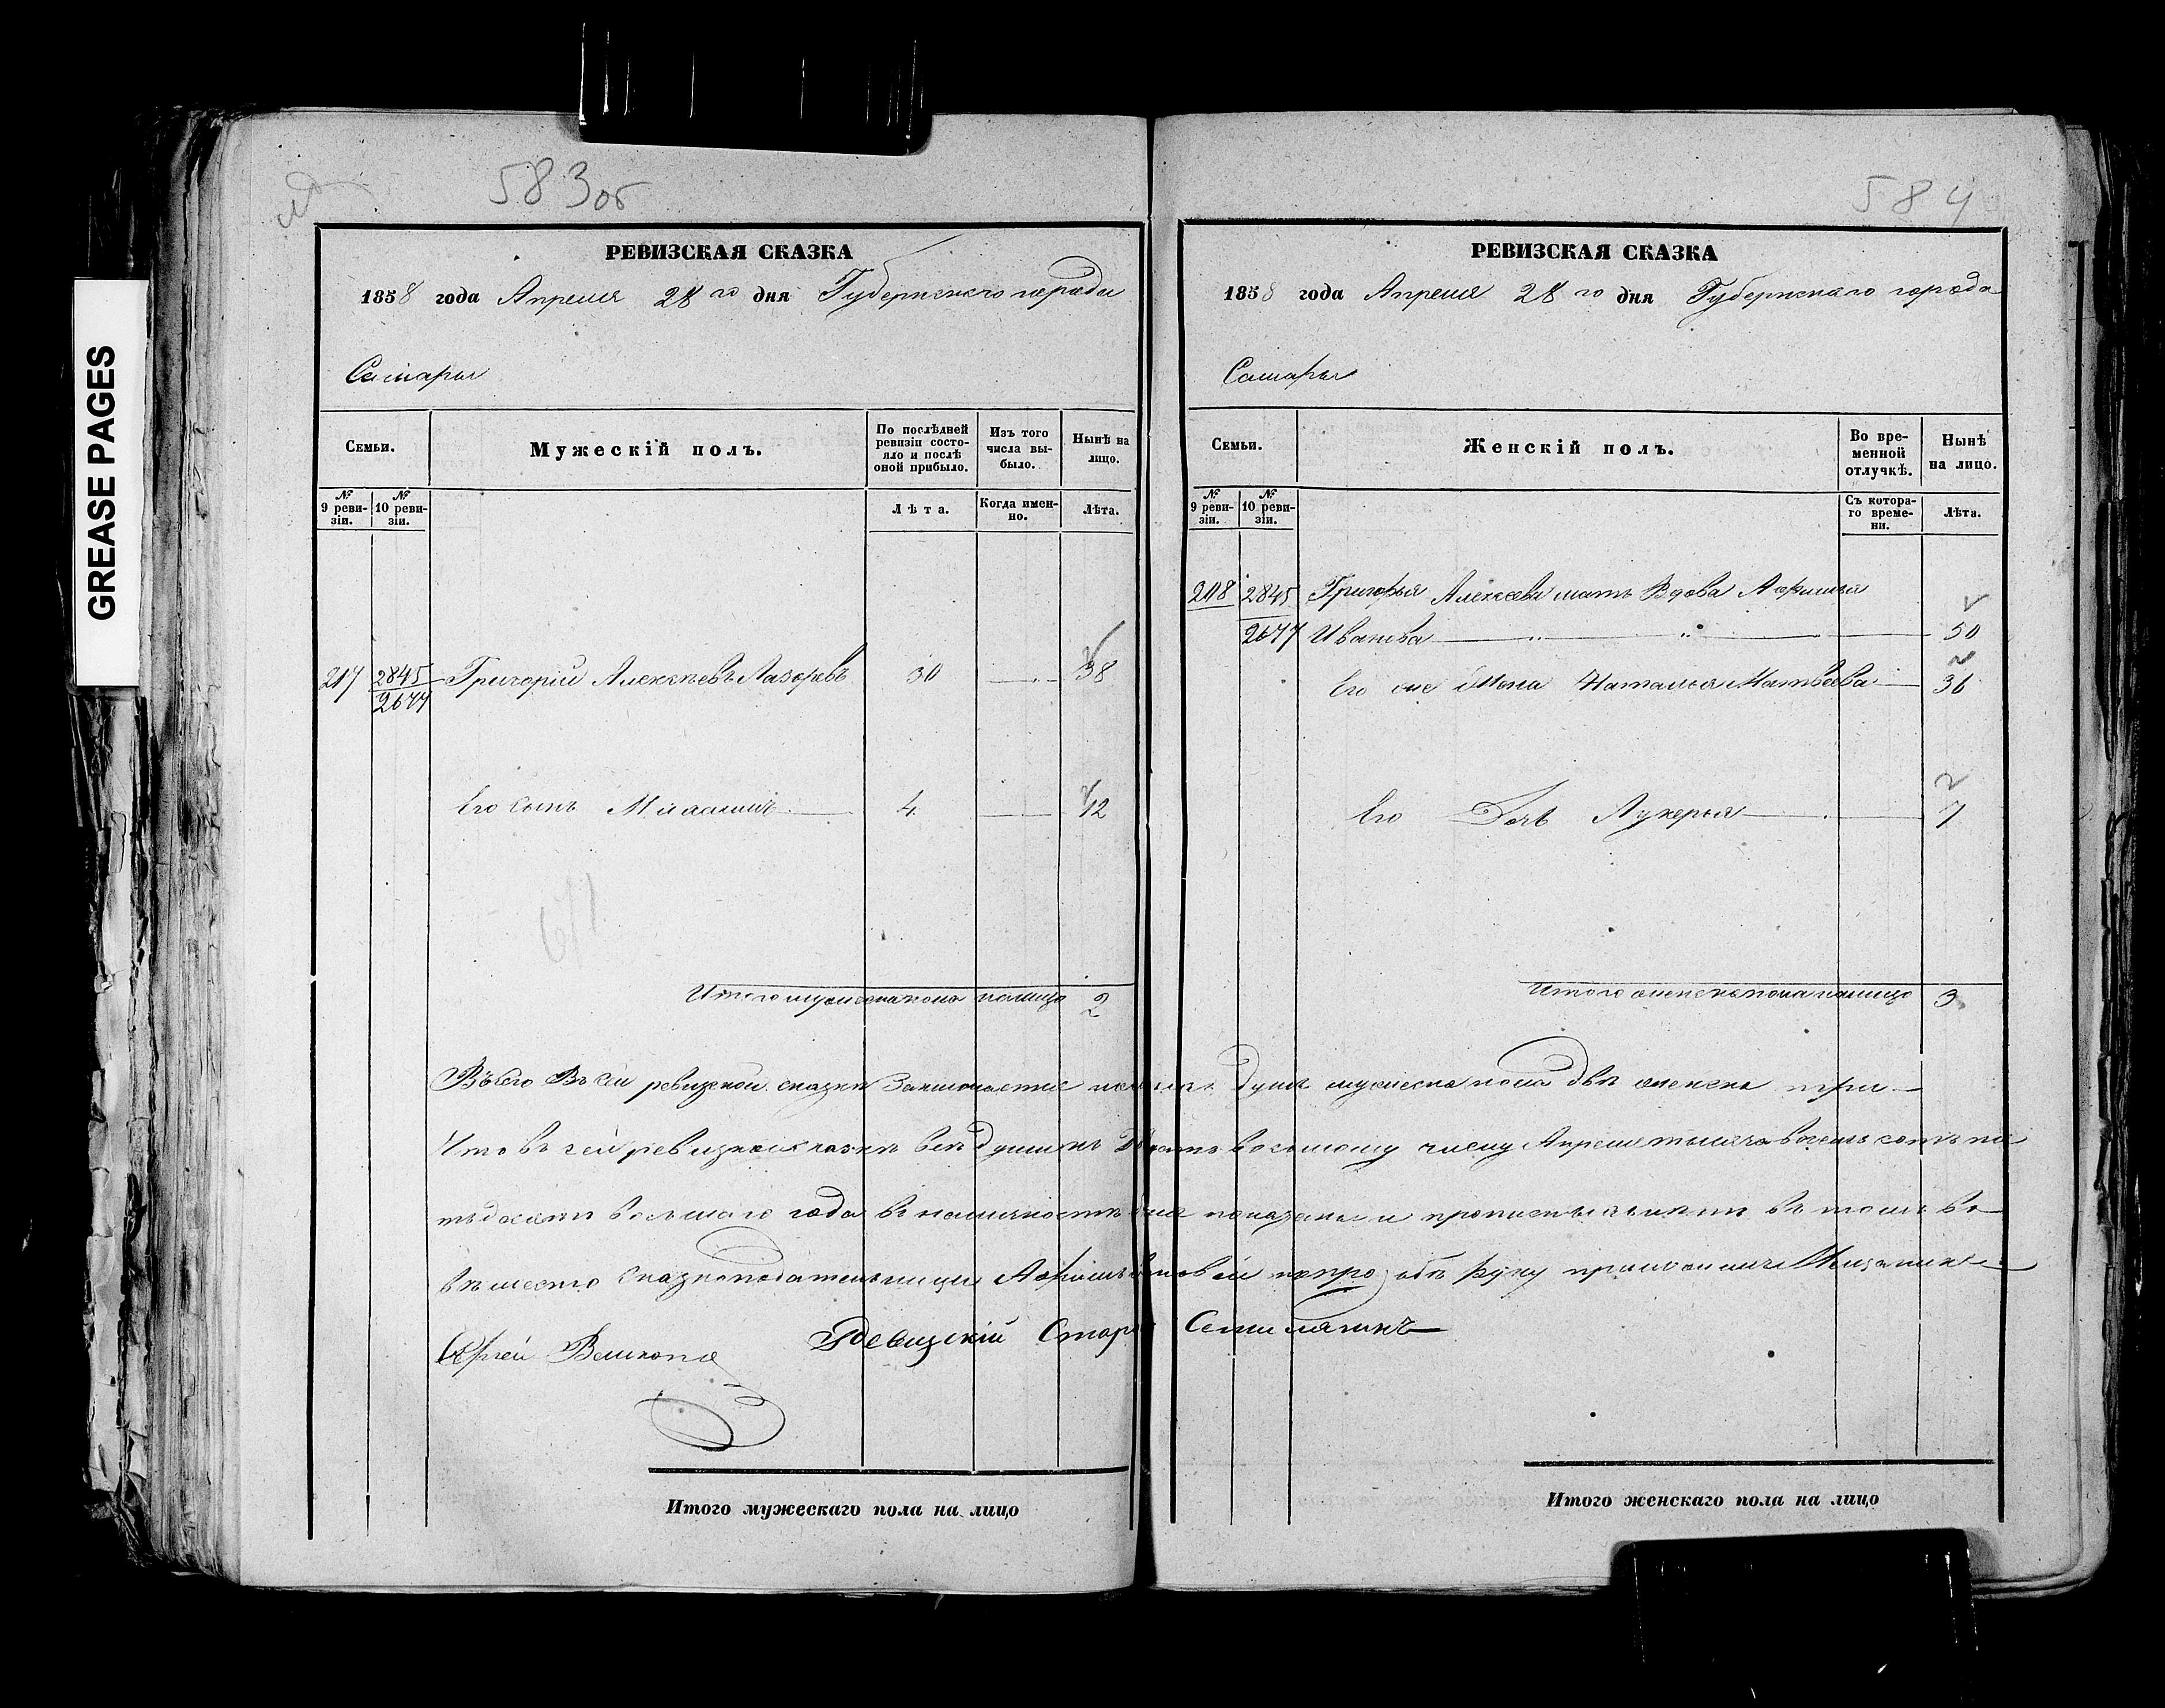 GREASE PAGES
583об
РЕВИЗСКАЯ СКАЗКА
1858 года Апреля 28го дня Губернскаго города
Самары
Семьи.
Мужескій полъ.
По послѣдней ревизіи состояло и послѣ оной прибыло.
Изъ того числа выбыло.
Нынѣ на лицо.
№ 9 ревизіи.
№ 10 ревизіи.
Лѣта.
Когда именно.
Лѣта.
217 2845 Григорій Алексѣевъ Лазоревъ 30 38
2677
Его сынъ 4 12
671
Итого мужеска пола налицо 2
584
РЕВИЗСКАЯ СКАЗКА
1858 года Апреля 28 го дня Губернскаго города
Самары
Семьи.
Женскій полъ.
Во временной отлучкѣ.
Нынѣ на лицо.
№ 9 ревизіи.
№ 10 ревизіи.
Съ котораго времени.
Лѣта.
2845 Григорья Алексеева мать Вдова
2677 Иванова 50
Его же Жена Наталья Матвѣева 36
Его Дочь Лукерья 7
Итого женска пола налицо 3
Всего въ сей ревизской сказкѣ Заключается душъ мужеска пола двѣ женска три
Что въ сей ревизской сказкѣ всѣ души къ восьмому числу Апреля тысяча восемь сотъ пя
тьдесятъ восьмаго года въ наличности показаны и прописныхъ нѣтъ въ томъ
вмѣсто сказкоподательницы руку приложилъ Мещанинъ
Сергей
Ревизскій Старо
Итого мужескаго пола на лицо
Итого женскаго пола на лицо